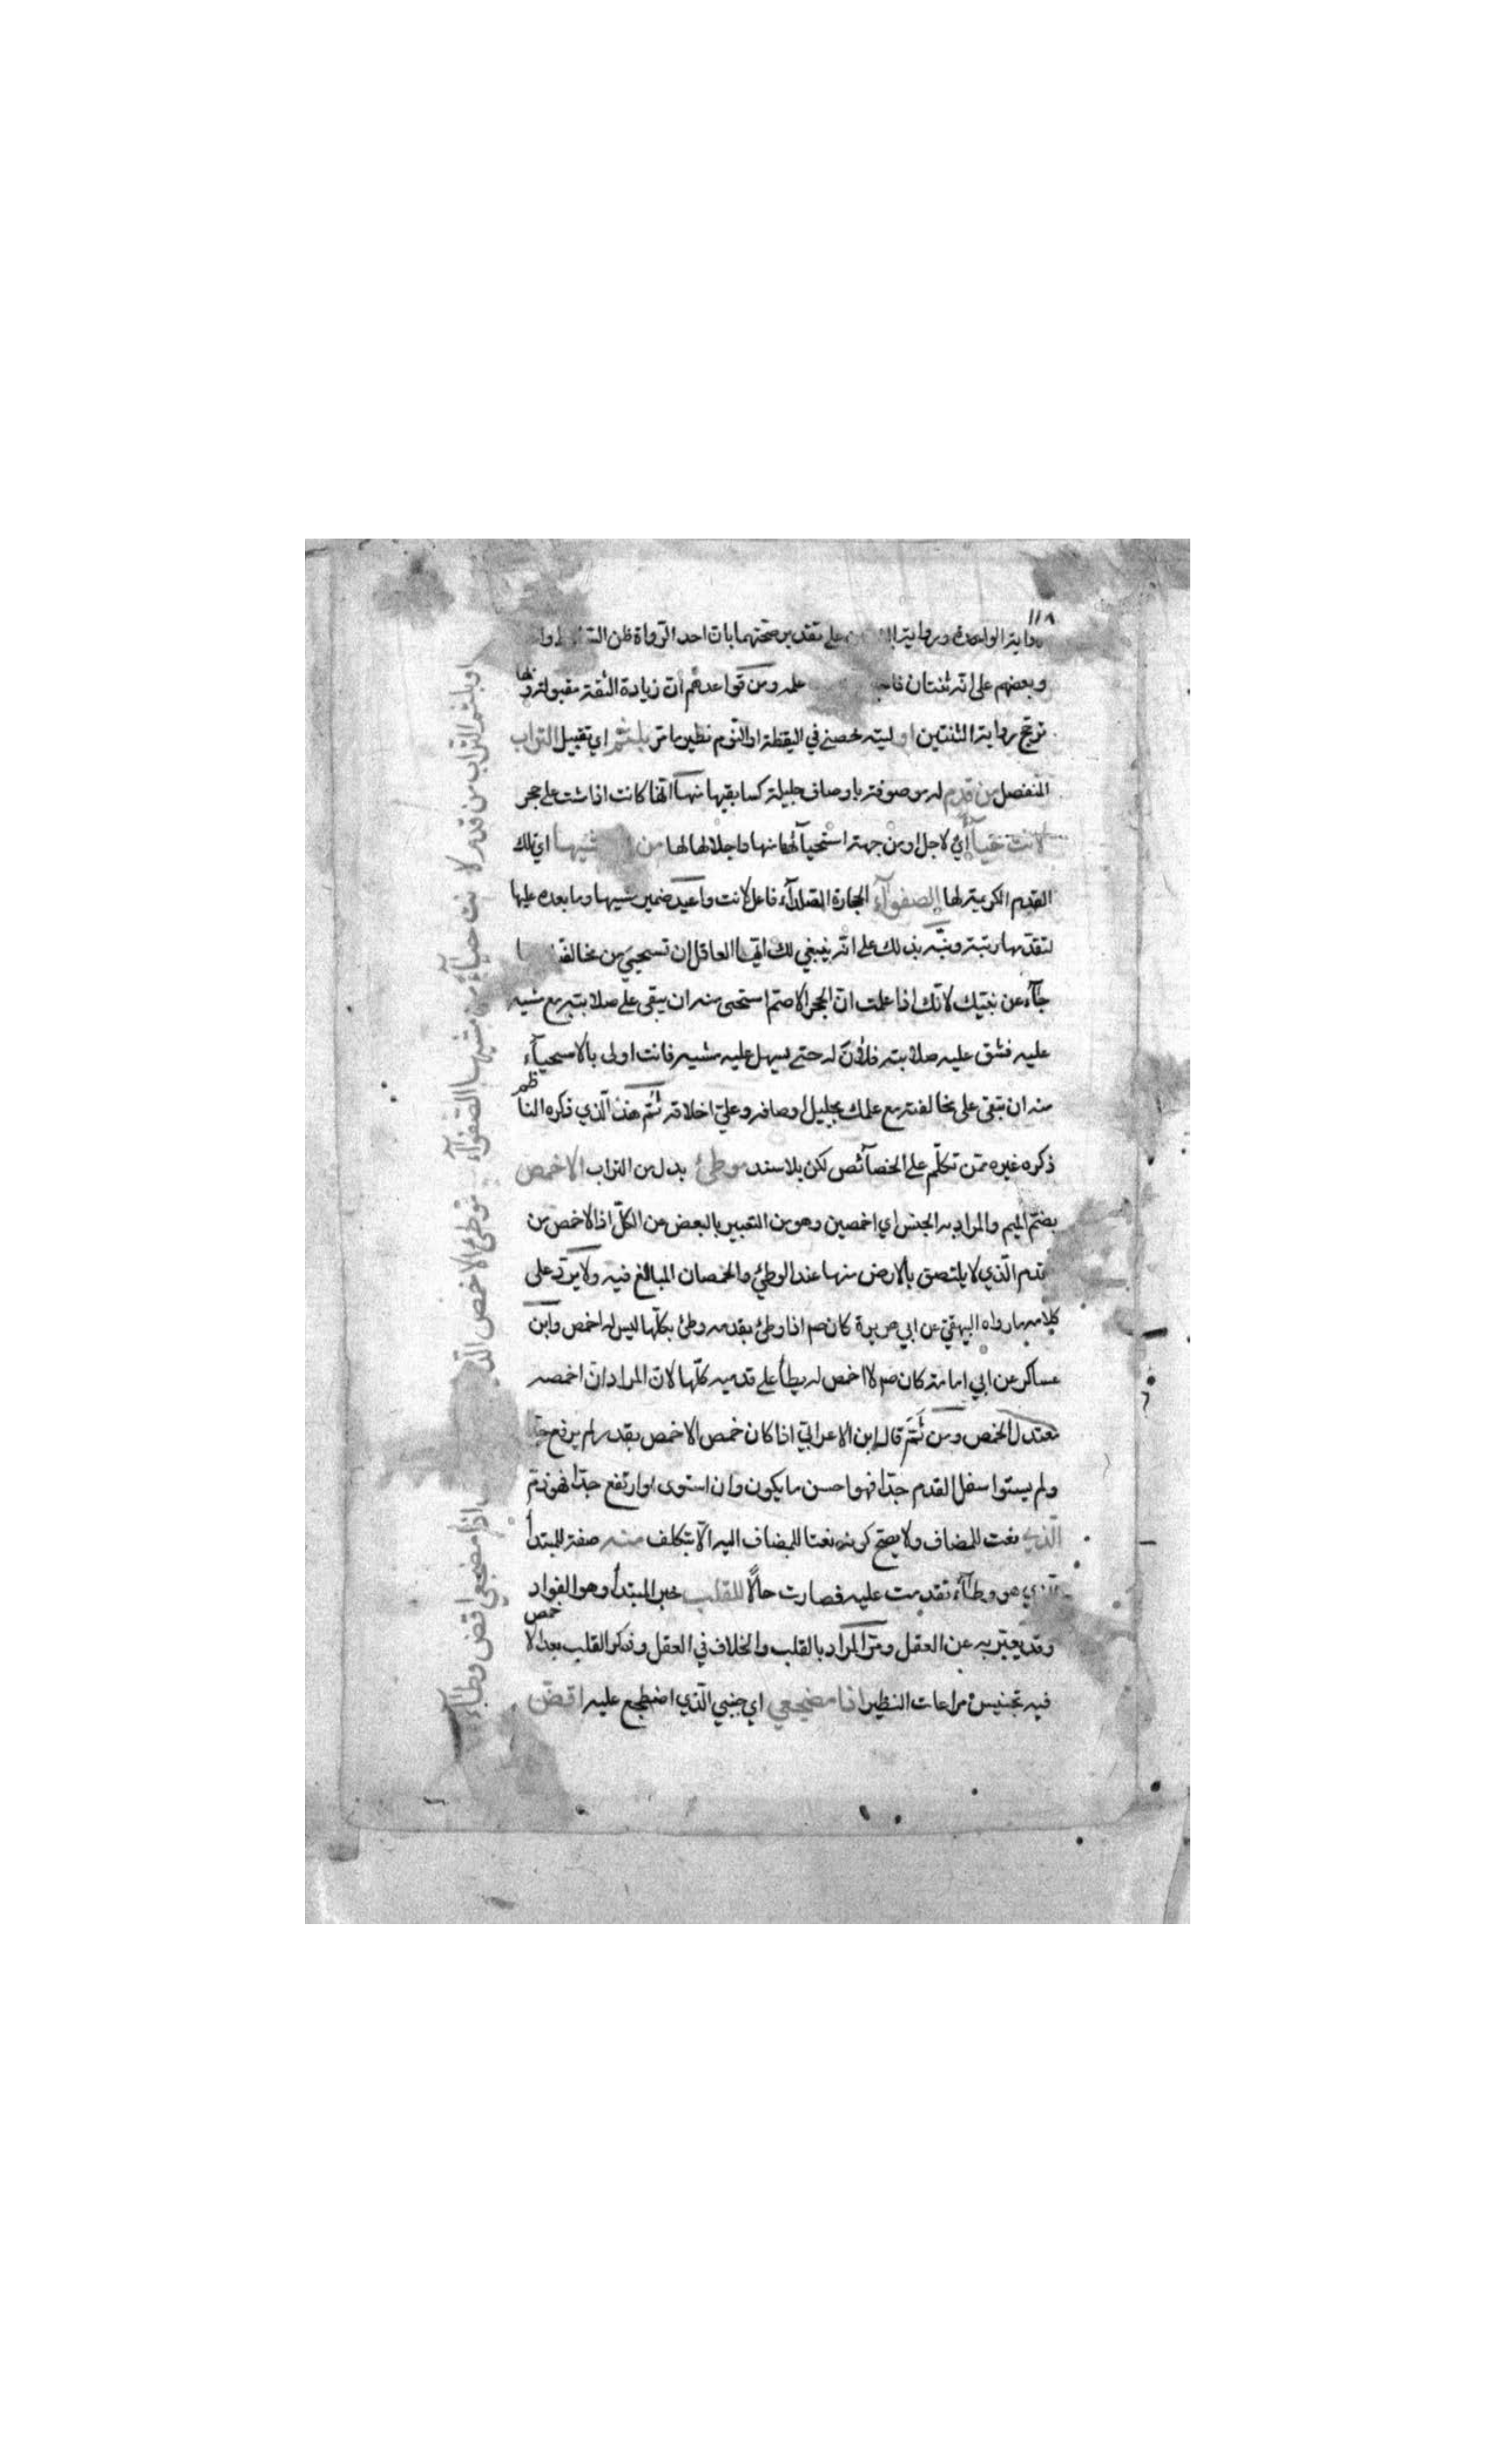 ١١٨
رواية الواحدة ورواية على تقدير صحتهما بان احد الرواة ظن
وبعضهم على انه ثنتان علمه ومن قواعدهم ان زيادة الثقة مقبولة
ترجح رواية الثنتين او ليته خصني في اليقظة او النوم نظير ما مر بلثم اي تقبيل التراب
المنفصل من قدم له موصوفة باوصاف جليلة كسابقيها منها انها كانت اذا مشت على حجر
لانت حياء اي لاجل او من جهة استحيائها منها واجلالها لها من مشيها اي تلك
القدم الكريمة لها الصفواء الحجارة الصلداء فاعل لانت واعيد ضمير مشيها وما بعده عليها
لتقدمها رتبة ونبه بذلك على انه ينبغي لك ايها العاقل ان تستحيي من مخالفة
جاء عن نبيك لانك اذا علمت ان الحجر الاصم استحى منه ان يبقى على صلابته مع مشيه
عليه فشق عليه صلابته فلان له حتى يسهل عليه مشيه فانت اولى بالاستحياء
منه ان تبقى على مخالفته مع علمك بجليل اوصافه وعلي اخلاقه ثم هذا الذي ذكره الناظم
ذكره غيره ممن تكلم على الخصائص لكن بلا سند موطئ بدل من التراب الاخمص
بضم الميم والمراد به الجنس اي اخمصين وهو من التعبير بالبعض عن الكل اذ الاخمص من
القدم الذي لا يلتصق بالارض منها عند الوطئ والخمصان المبالغ فيه ولا يرد على
كلامه ما رواه البيهقي عن ابي هريرة كان صم اذا وطئ بقدمه وطئ بكلها ليس له اخمص وابن
عساكر عن ابي امامة كان صم لا اخمص له يطأ على قدميه كلها لان المراد ان اخمصه
معتدل الخمص ومن ثم قال ابن الاعرابي اذا كان خمص الاخمص بقدر لم يرتفع جدا
ولم يستوا سفل القدم جدا فهو احسن ما يكون وان استوى او ارتفع جدا فهو ذم
الذي نعت للمضاف ولا يصح كونه نعتا للمضاف اليه الا بتكلف منه صفة للمبتدأ
الذي هو وطاء تقدمت عليه فصارت حالاً للقلب خبر المبتدأ وهو الفواد
وقد يعبر به عن العقل ومر المراد بالقلب والخلاف في العقل وذكر القلب بعد الاخمص
فيه تجنيس مراعات النظير اذا مضجعي اي جنبي الذي اضطجع عليه اقض
او بلثم التراب من قدم لانت حياء من مشيها الصفواء موطئ الاخمص الذي
اذا مضجعي اقض وطاء